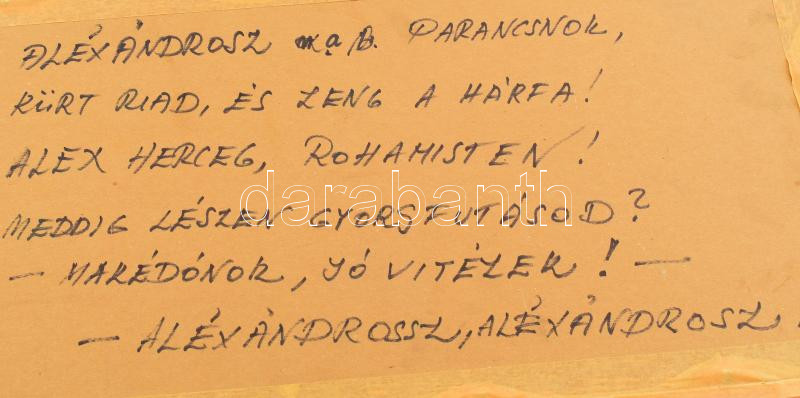 ALÉXÁNDROSZ PARANCSNOK,
KÜRT RIAD, ÉS ZENG A HÁRFA!
ALEX HERCEG, ROHAMISTEN!
MEDDIG LÉSZEN GYORSFUTÁSOD?
— MAKÉDÓNOK, JÓ VITÉZEK! —
— ALÉXÁNDROSSZ, ALÉXÁNDROSZ
darabanth